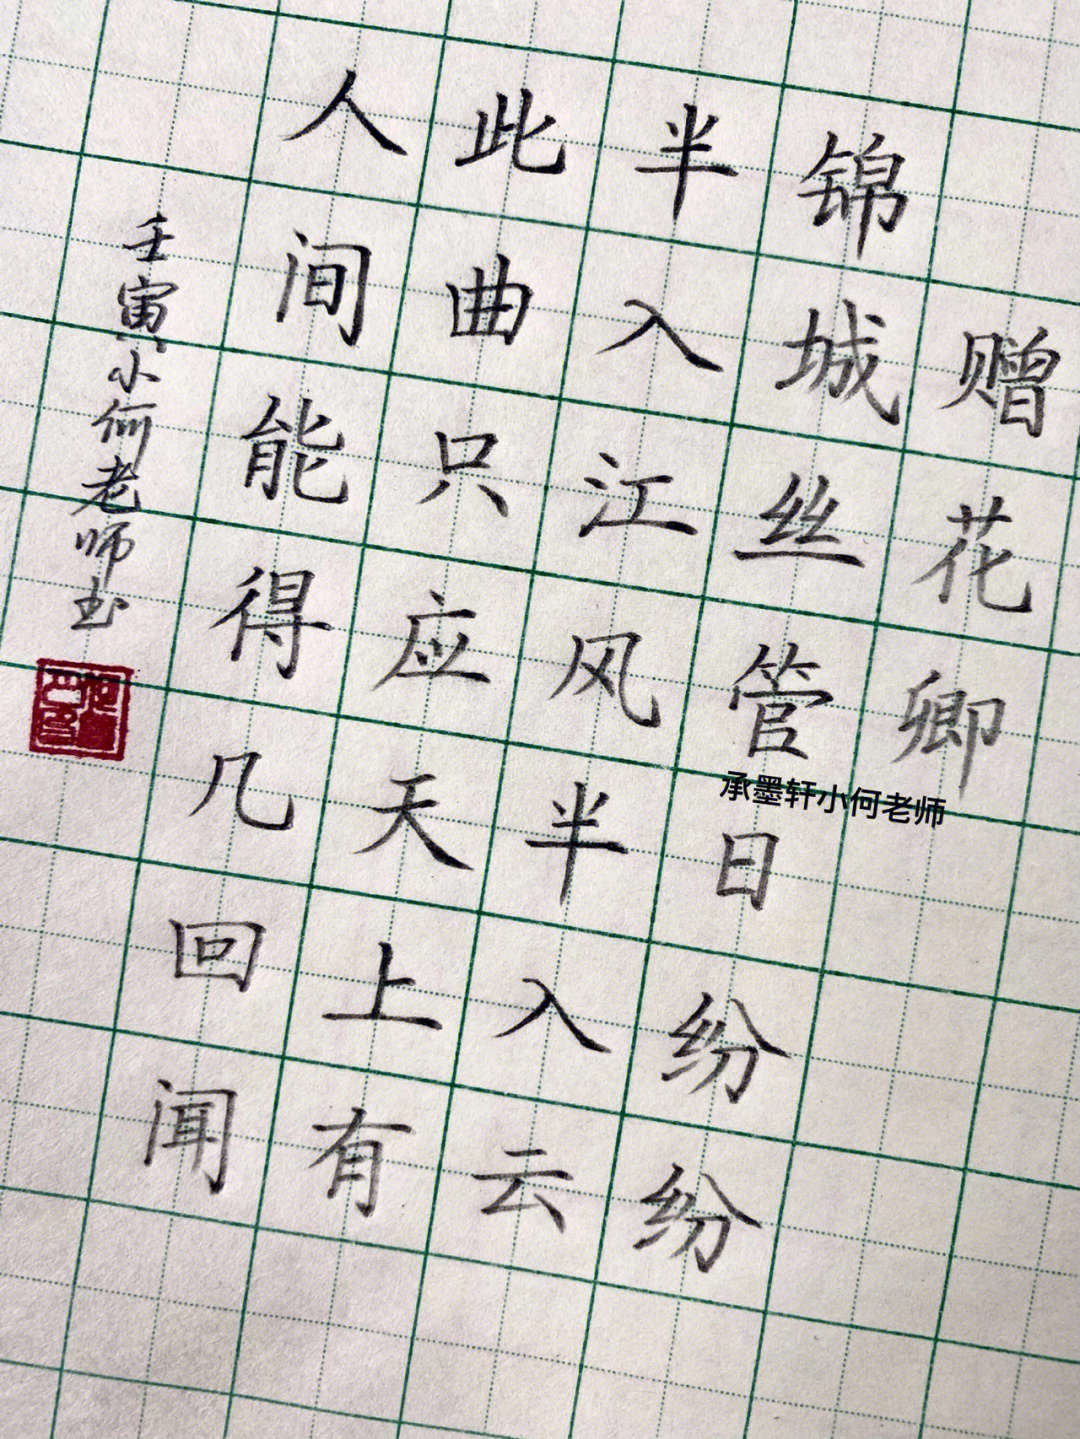 赠花卿
锦城丝管日纷纷
半入江风半入云
此曲只应天上有
人间能得几回闻
壬寅小何老师书
承墨轩小何老师